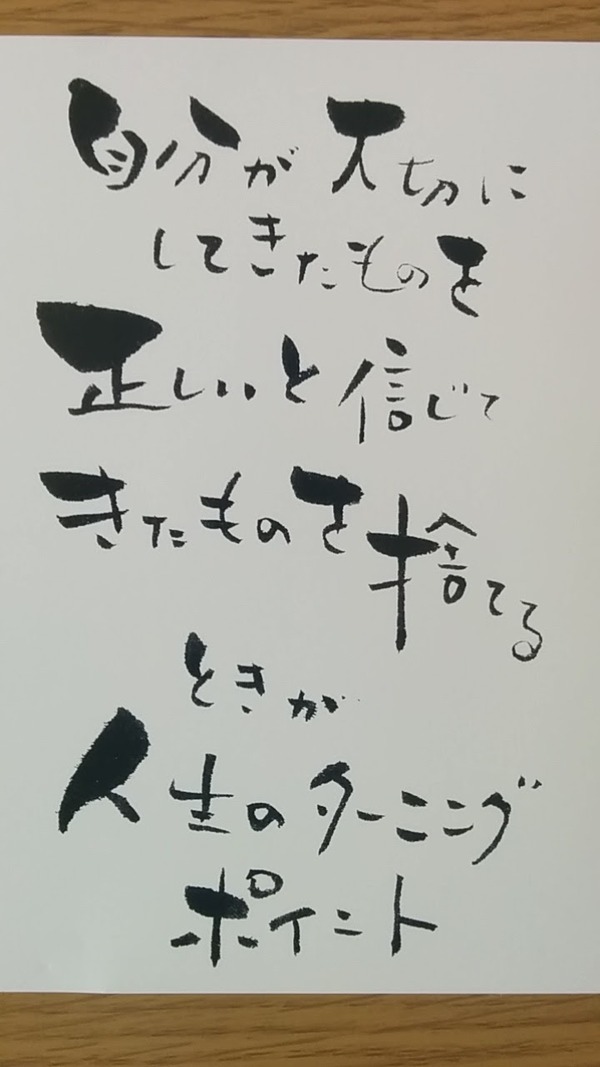 自分が大切に
してきたものを
正しいと信じて
きたものを捨てる
ときが
人生のターニング
ポイント